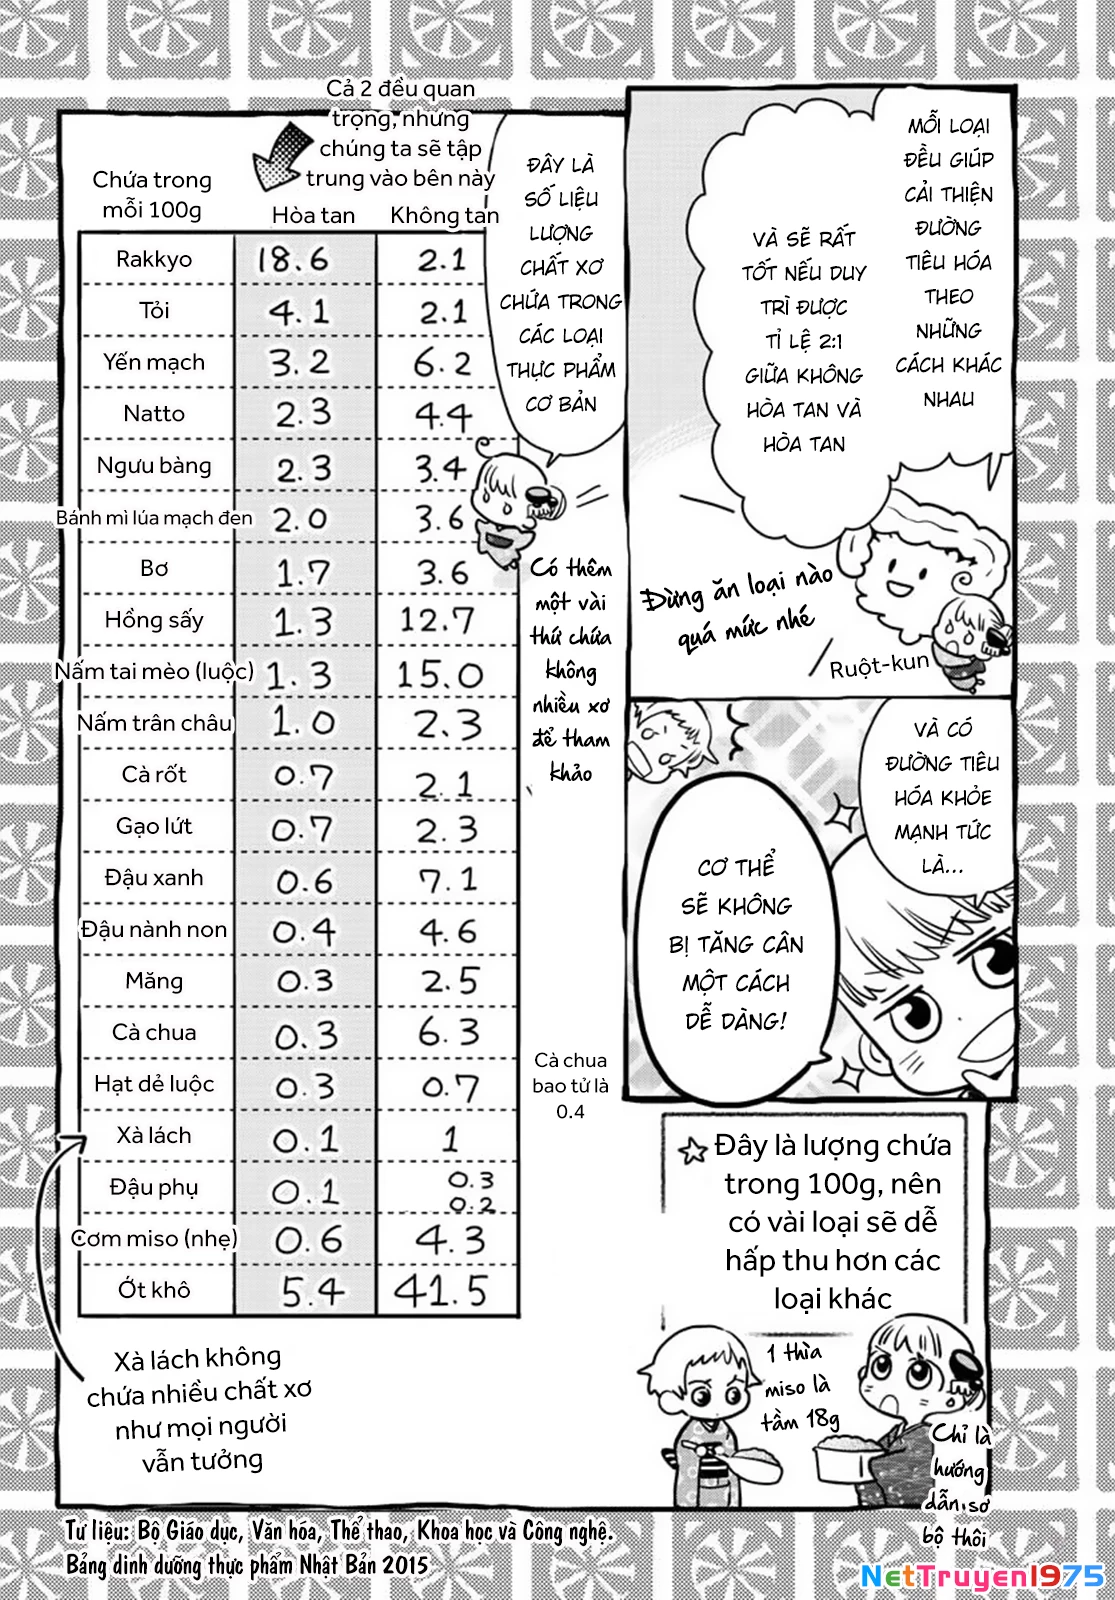 MỖI LOẠI
ĐỀU GIÚP
CẢI THIỆN
ĐƯỜNG
TIÊU HÓA
THEO
NHỮNG
CÁCH KHÁC
NHAU
VÀ SẼ RẤT
TỐT NẾU DUY
TRÌ ĐƯỢC
TỈ LỆ 2:1
GIỮA KHÔNG
HÒA TAN VÀ
HÒA TAN
Đừng ăn loại nào
quá mức nhé
Ruột-kun
ĐÂY LÀ
SỐ LIỆU
LƯỢNG
CHẤT XƠ
CHỨA TRONG
CÁC LOẠI
THỰC PHẨM
CƠ BẢN
Có thêm
một vài
thứ chứa
không
nhiều xơ
để tham
khảo
Cả 2 đều quan
trọng, nhưng
chúng ta sẽ tập
trung vào bên này
Chứa trong
mỗi 100g
Hòa tan Không tan
Rakkyo 18.6 2.1
Tỏi 4.1 2.1
Yến mạch 3.2 6.2
Natto 2.3 4.4
Ngưu bàng 2.3 3.4
Bánh mì lúa mạch đen 2.0 3.6
Bơ 1.7 3.6
Hồng sấy 1.3 12.7
Nấm tai mèo (luộc) 1.3 15.0
Nấm trân châu 1.0 2.3
Cà rốt 0.7 2.1
Gạo lứt 0.7 2.3
Đậu xanh 0.6 7.1
Đậu nành non 0.4 4.6
Măng 0.3 2.5
Cà chua 0.3 6.3
Hạt dẻ luộc 0.3 0.7
Xà lách 0.1 1
Đậu phụ 0.1 0.3
0.2
Cơm miso (nhẹ) 0.6 4.3
Ớt khô 5.4 41.5
Cà chua
bao tử là
0.4
Xà lách không
chứa nhiều chất xơ
như mọi người
vẫn tưởng
VÀ CÓ
ĐƯỜNG TIÊU
HÓA KHỎE
MẠNH TỨC
LÀ...
CƠ THỂ
SẼ KHÔNG
BỊ TĂNG CÂN
MỘT CÁCH
DỄ DÀNG!
☆ Đây là lượng chứa
trong 100g, nên
có vài loại sẽ dễ
hấp thu hơn các
loại khác
1 thìa
miso là
tầm 18g
Chỉ là
hướng
dẫn sơ
bộ thôi
Tư liệu: Bộ Giáo dục, Văn hóa, Thể thao, Khoa học và Công nghệ.
Bảng dinh dưỡng thực phẩm Nhật Bản 2015
NetTruyen1975